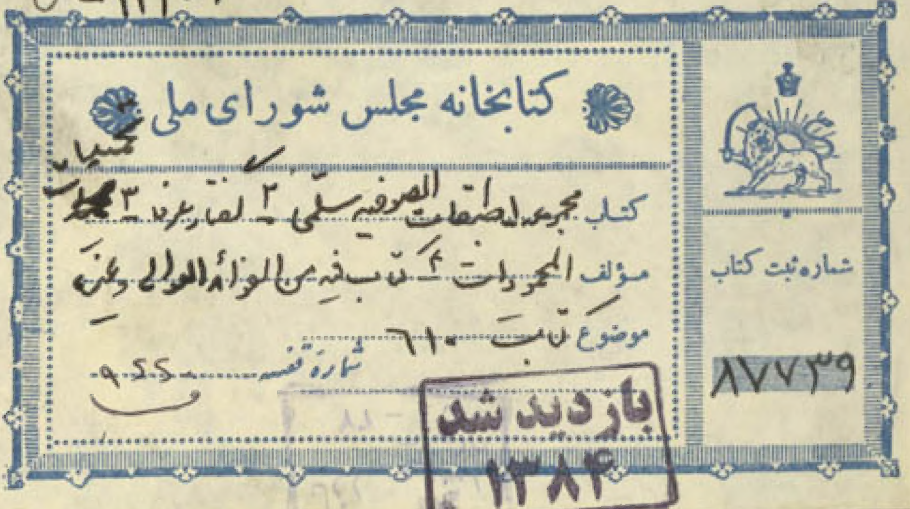 کتابخانه مجلس شورای ملی
کتاب مجموعه ۱ طبقات الصوفیه سلمی ۲ گفتار عرفا ۳
مؤلف المجردات ۴ کتاب فیه من الفوائد
موضوع کتاب ۶۱۰
شماره قفسه ۹۵۵۰
شماره ثبت کتاب
۸۷۷۳۹
بازدید شد
۱۳۸۴